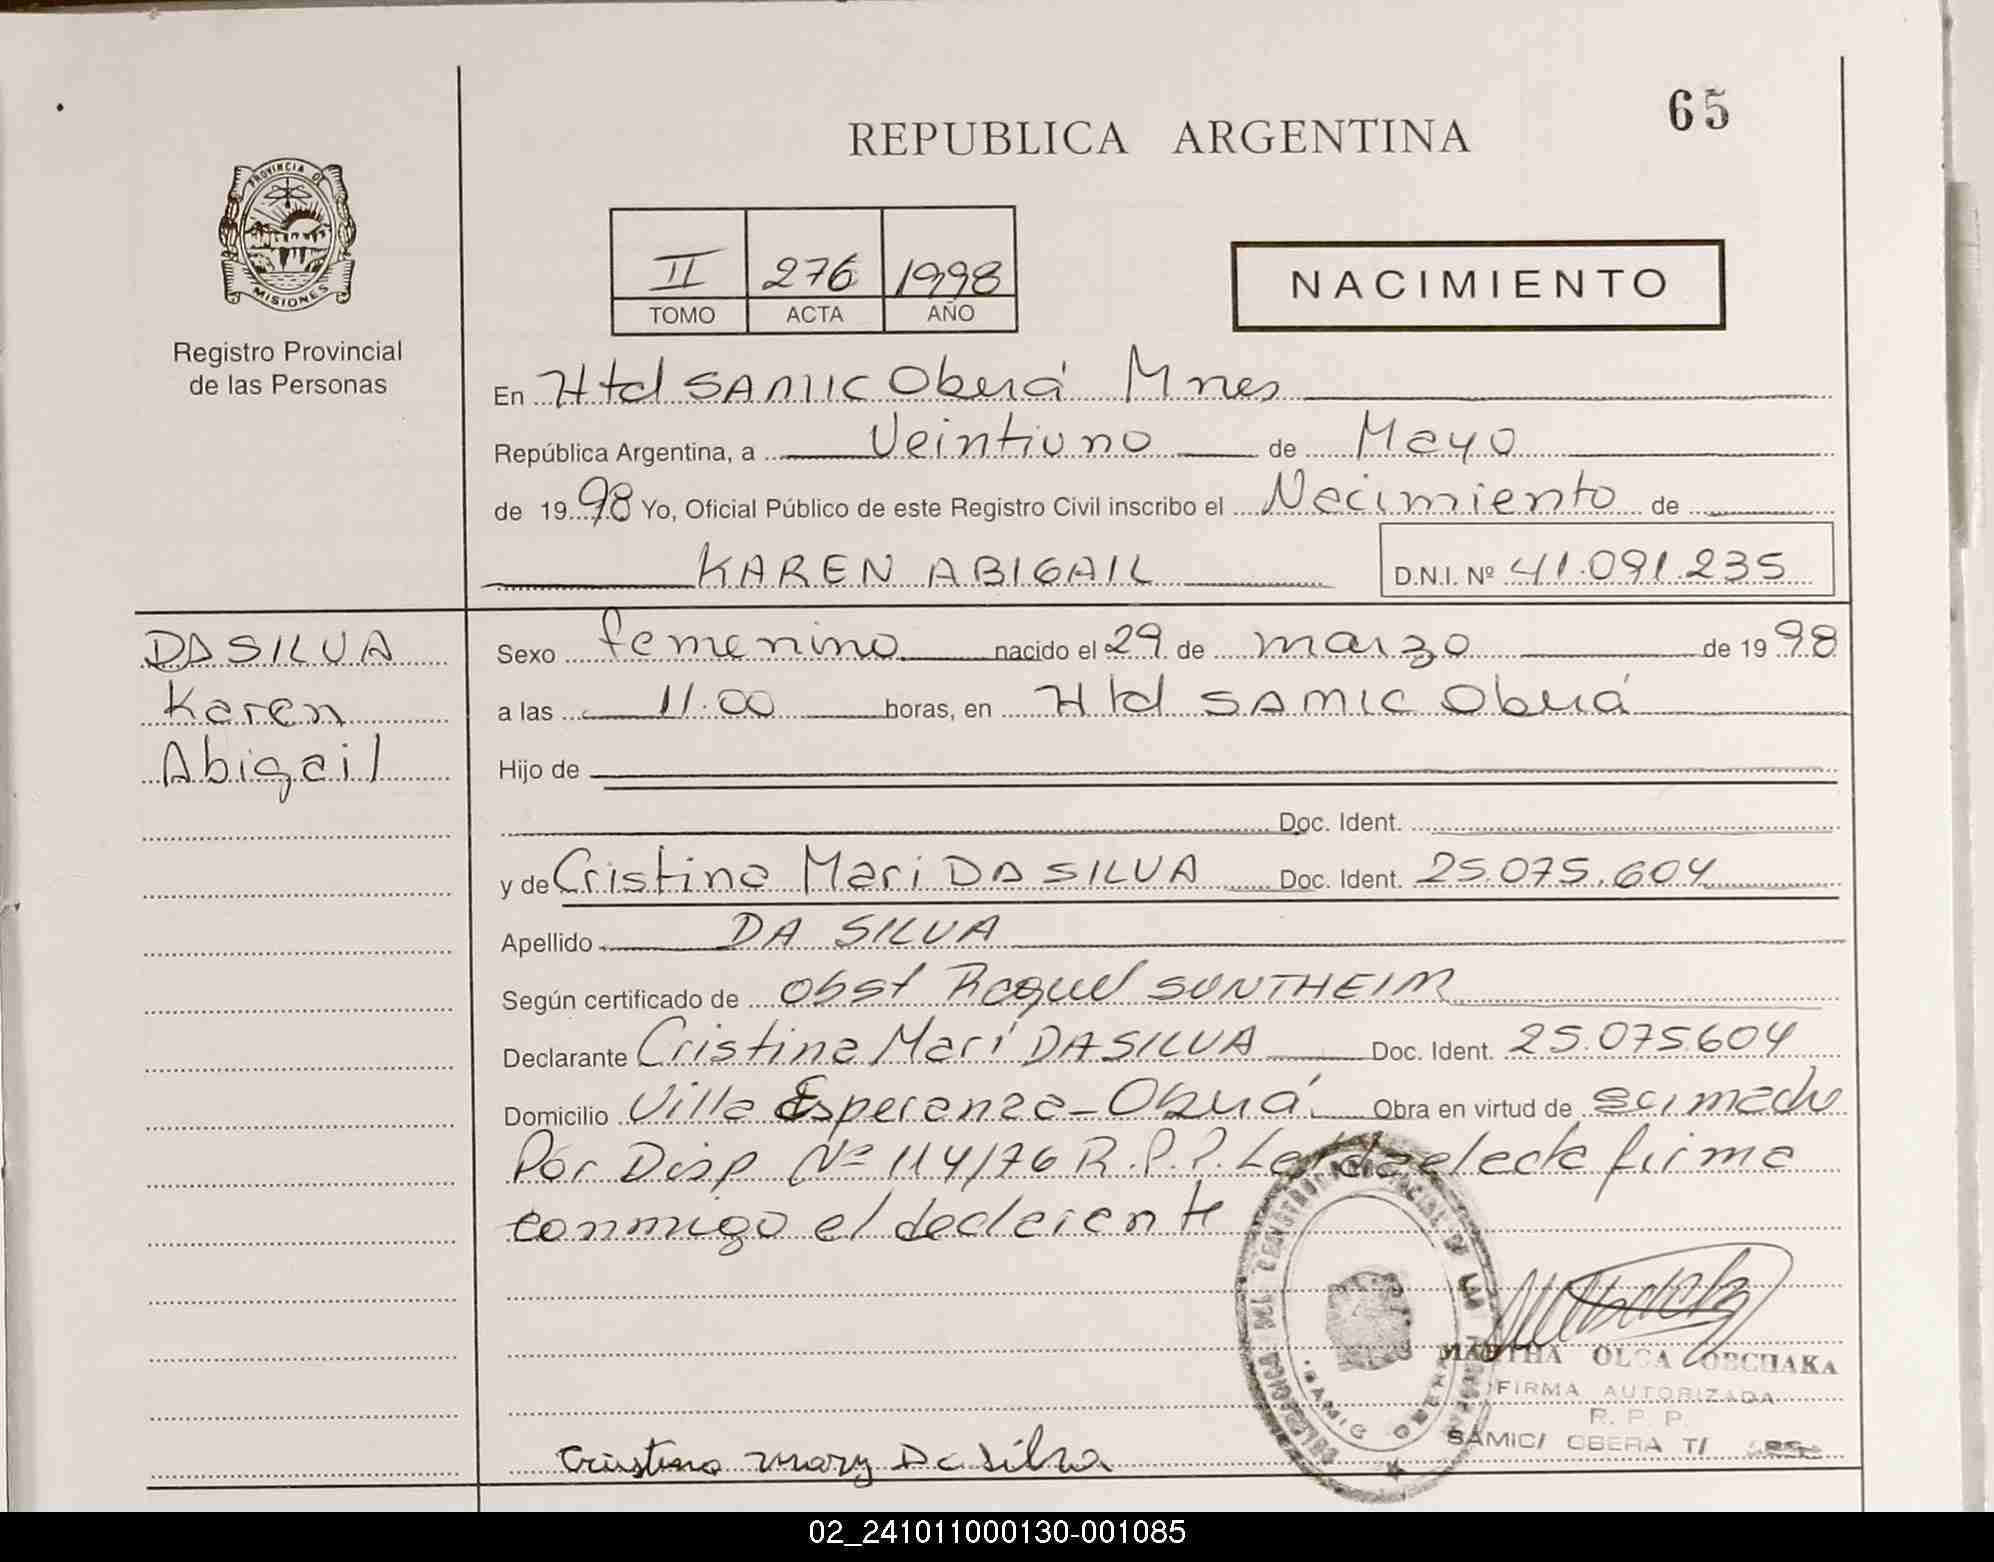 65
REPUBLICA ARGENTINA
PROVINCIA DE
MISIONES
Registro Provincial
de las Personas
II 276 1998
TOMO ACTA AÑO
NACIMIENTO
En Htal SAMIC Oberá Mnes
República Argentina, a Veintiuno de Mayo
de 1998 Yo, Oficial Público de este Registro Civil inscribo el Nacimiento de
KAREN ABIGAIL D.N.I. Nº 41.091.235
DA SILVA
Karen
Abigail
Sexo femenino nacido el 29 de marzo de 1998
a las 11.00 horas, en Htal SAMIC Oberá
Hijo de
Doc. Ident.
y de Cristina Mari DA SILVA Doc. Ident. 25.075.604
Apellido DA SILVA
Según certificado de Obst Raquel SUNTHEIM
Declarante Cristina Mari DA SILVA Doc. Ident. 25.075604
Domicilio Villa Esperanza - Oberá Obra en virtud de
Por Disp Nº 114/76 R.P.P. Leída el acta firma
conmigo el declarante
MARTHA OLGA OBCHAKA
FIRMA AUTORIZADA
R. P. P.
SAMIC/ OBERA T/
SAMIC OBERA
Cristina Mary Da Silva
02_241011000130-001085